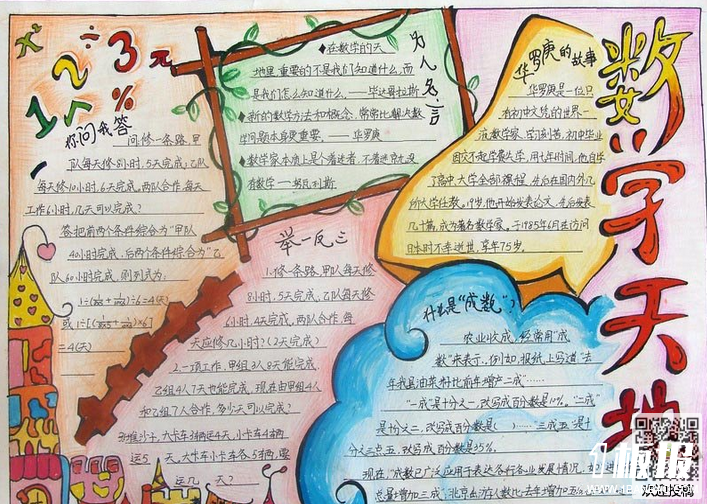 数学天地
x²
÷
1 2 3 元
%
你问我答
问修一条路,甲
队每天修8小时,5天完成;乙队
每天修10小时,6天完成,两队合作,每天
工作6小时,几天可以完成?
答把前两个条件综合为“甲队
40小时完成,后两个条件综合“乙
队60小时完成,则列式为:
=4(天)
为人名言
◆在数学的天
地里,重要的不是我们知道什么,而
是我们怎么知道什么。——毕达哥拉斯
◆新的数学方法和概念,常常比解决数
学问题本身更重要。——华罗庚
◆数学家本质上是个着迷者,不着迷就没
有数学——努瓦利斯
华罗庚的故事
华罗庚是一位只
有初中文凭的世界一
流数学家,学习刻苦,初中毕业
因交不起学费失学,用七年时间,他自学
了高中,大学全部课程,先后在国内外几
所大学任教,19岁,他开始发表论文,先后发表
几十篇,成为著名数学家。于1985年6月去访问
日本时不幸逝世,享年75岁。
举一反三
1.修一条路,甲队每天修
8小时,5天完成,乙队每天修
6小时,4天完成,两队合作,每
天应修几小时?(2天完成)
2.一项工作,甲组3人8天能完成,
乙组4人7天也能完成,现在由甲组4人
和乙组7人合作,多少天可以完成?
大卡车3辆运4天,小卡车4辆
运5天,大卡车小卡车各5辆,要
运几天?
什么是“成数”?
农业收成,经常用“成
数”来表示。例如,报纸上写道“去
年我县油菜籽比前年增产二成”……
“一成”是十分之一,改写成百分数是10%。“二成”
是十分之二,改写成百分数是( )……三成五是十
分之三点五,改写成百分数是35%。
现在,“成数”已广泛应用于表达各行各业发展情况,